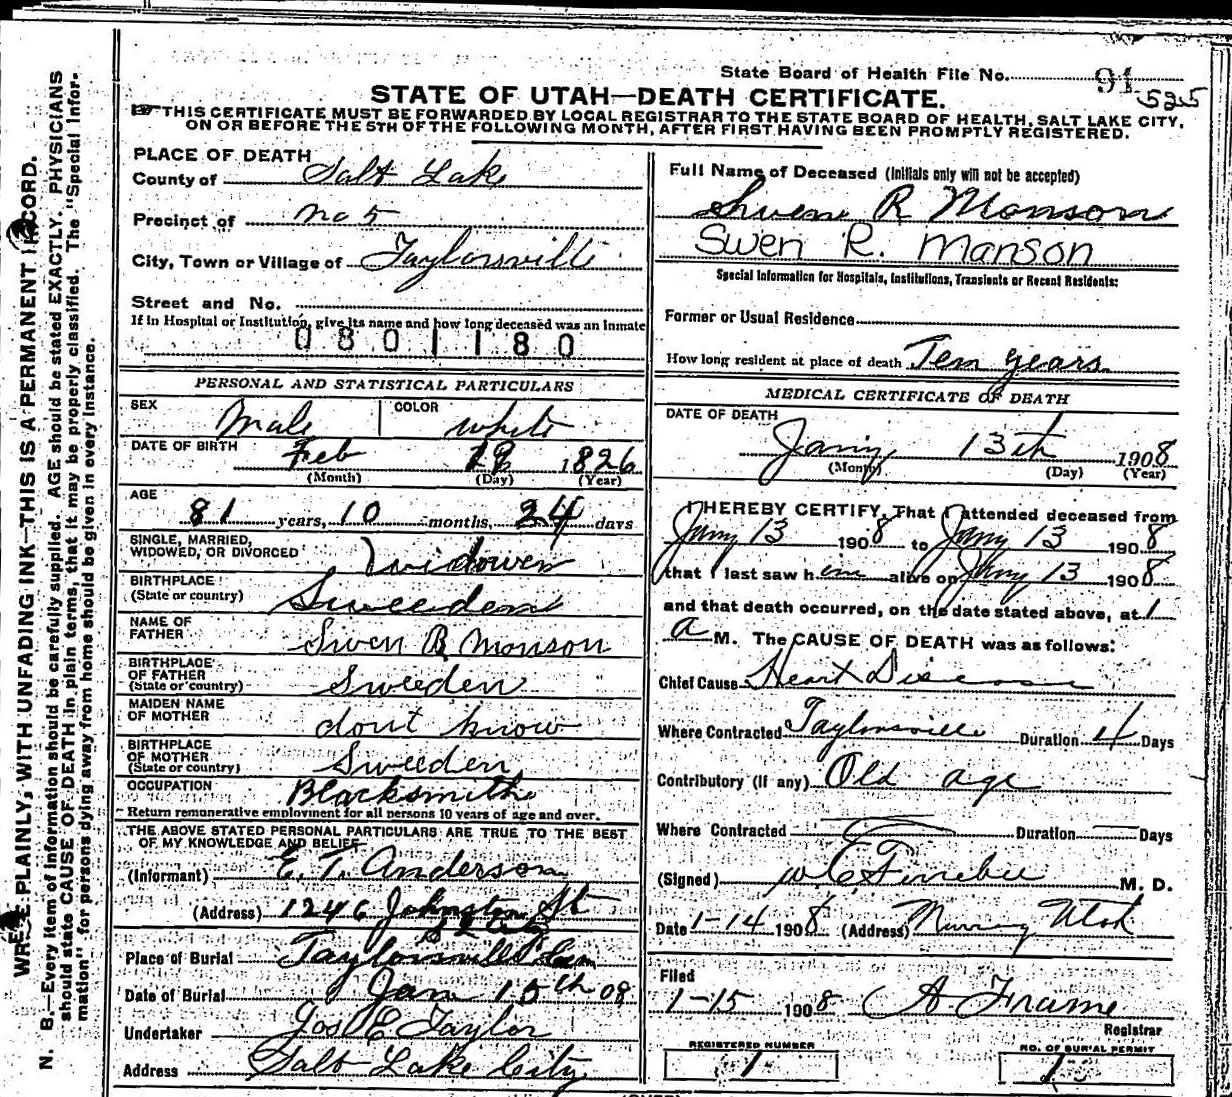 State Board of Health File No. 91 525
STATE OF UTAH—DEATH CERTIFICATE.
THIS CERTIFICATE MUST BE FORWARDED BY LOCAL REGISTRAR TO THE STATE BOARD OF HEALTH, SALT LAKE CITY,
ON OR BEFORE THE 5TH OF THE FOLLOWING MONTH, AFTER FIRST HAVING BEEN PROMPTLY REGISTERED.
WRITE PLAINLY, WITH UNFADING INK—THIS IS A PERMANENT RECORD.
N. B.—Every item of information should be carefully supplied. AGE should be stated EXACTLY. PHYSICIANS
should state CAUSE OF DEATH in plain terms, that it may be properly classified. The "Special Infor-
mation" for persons dying away from home should be given in every instance.
PLACE OF DEATH
County of Salt Lake
Precinct of No 5
City, Town or Village of Taylorsville
Street and No.
If in Hospital or Institution, give its name and how long deceased was an inmate
0801180
PERSONAL AND STATISTICAL PARTICULARS
SEX Male COLOR white
DATE OF BIRTH Feb 19 1826
(Month) (Day) (Year)
AGE 81 years, 10 months, 24 days
SINGLE, MARRIED,
WIDOWED, OR DIVORCED Widower
BIRTHPLACE
(State or country) Sweeden
NAME OF
FATHER Swen B Monson
BIRTHPLACE
OF FATHER
(State or country) Sweeden
MAIDEN NAME
OF MOTHER dont know
BIRTHPLACE
OF MOTHER
(State or country) Sweeden
OCCUPATION Blacksmith
Return remunerative employment for all persons 10 years of age and over.
THE ABOVE STATED PERSONAL PARTICULARS ARE TRUE TO THE BEST
OF MY KNOWLEDGE AND BELIEF
(Informant) E. T. Anderson
(Address) 1246 Johnston St
S L City
Place of Burial Taylorsville Cem
Date of Burial Jan 15th 08
Undertaker Jos E Taylor
Address Salt Lake City
Full Name of Deceased (Initials only will not be accepted)
Swen R Monson
Swen R. Manson
Special Information for Hospitals, Institutions, Transients or Recent Residents:
Former or Usual Residence
How long resident at place of death Ten years
MEDICAL CERTIFICATE OF DEATH
DATE OF DEATH
Jany 13th 1908
(Month) (Day) (Year)
I HEREBY CERTIFY, That I attended deceased from
Jany 13 1908 to Jany 13 1908
that I last saw him alive on Jany 13 1908
and that death occurred, on the date stated above, at 1
a M. The CAUSE OF DEATH was as follows:
Chief Cause Heart Disease
Where Contracted Taylorsville Duration 4 Days
Contributory (if any) Old age
Where Contracted Duration Days
(Signed) M. D.
Date 1-14 1908 (Address) Murray Utah
Filed
1-15 1908 A Frame
Registrar
REGISTERED NUMBER
1
NO. OF BURIAL PERMIT
1